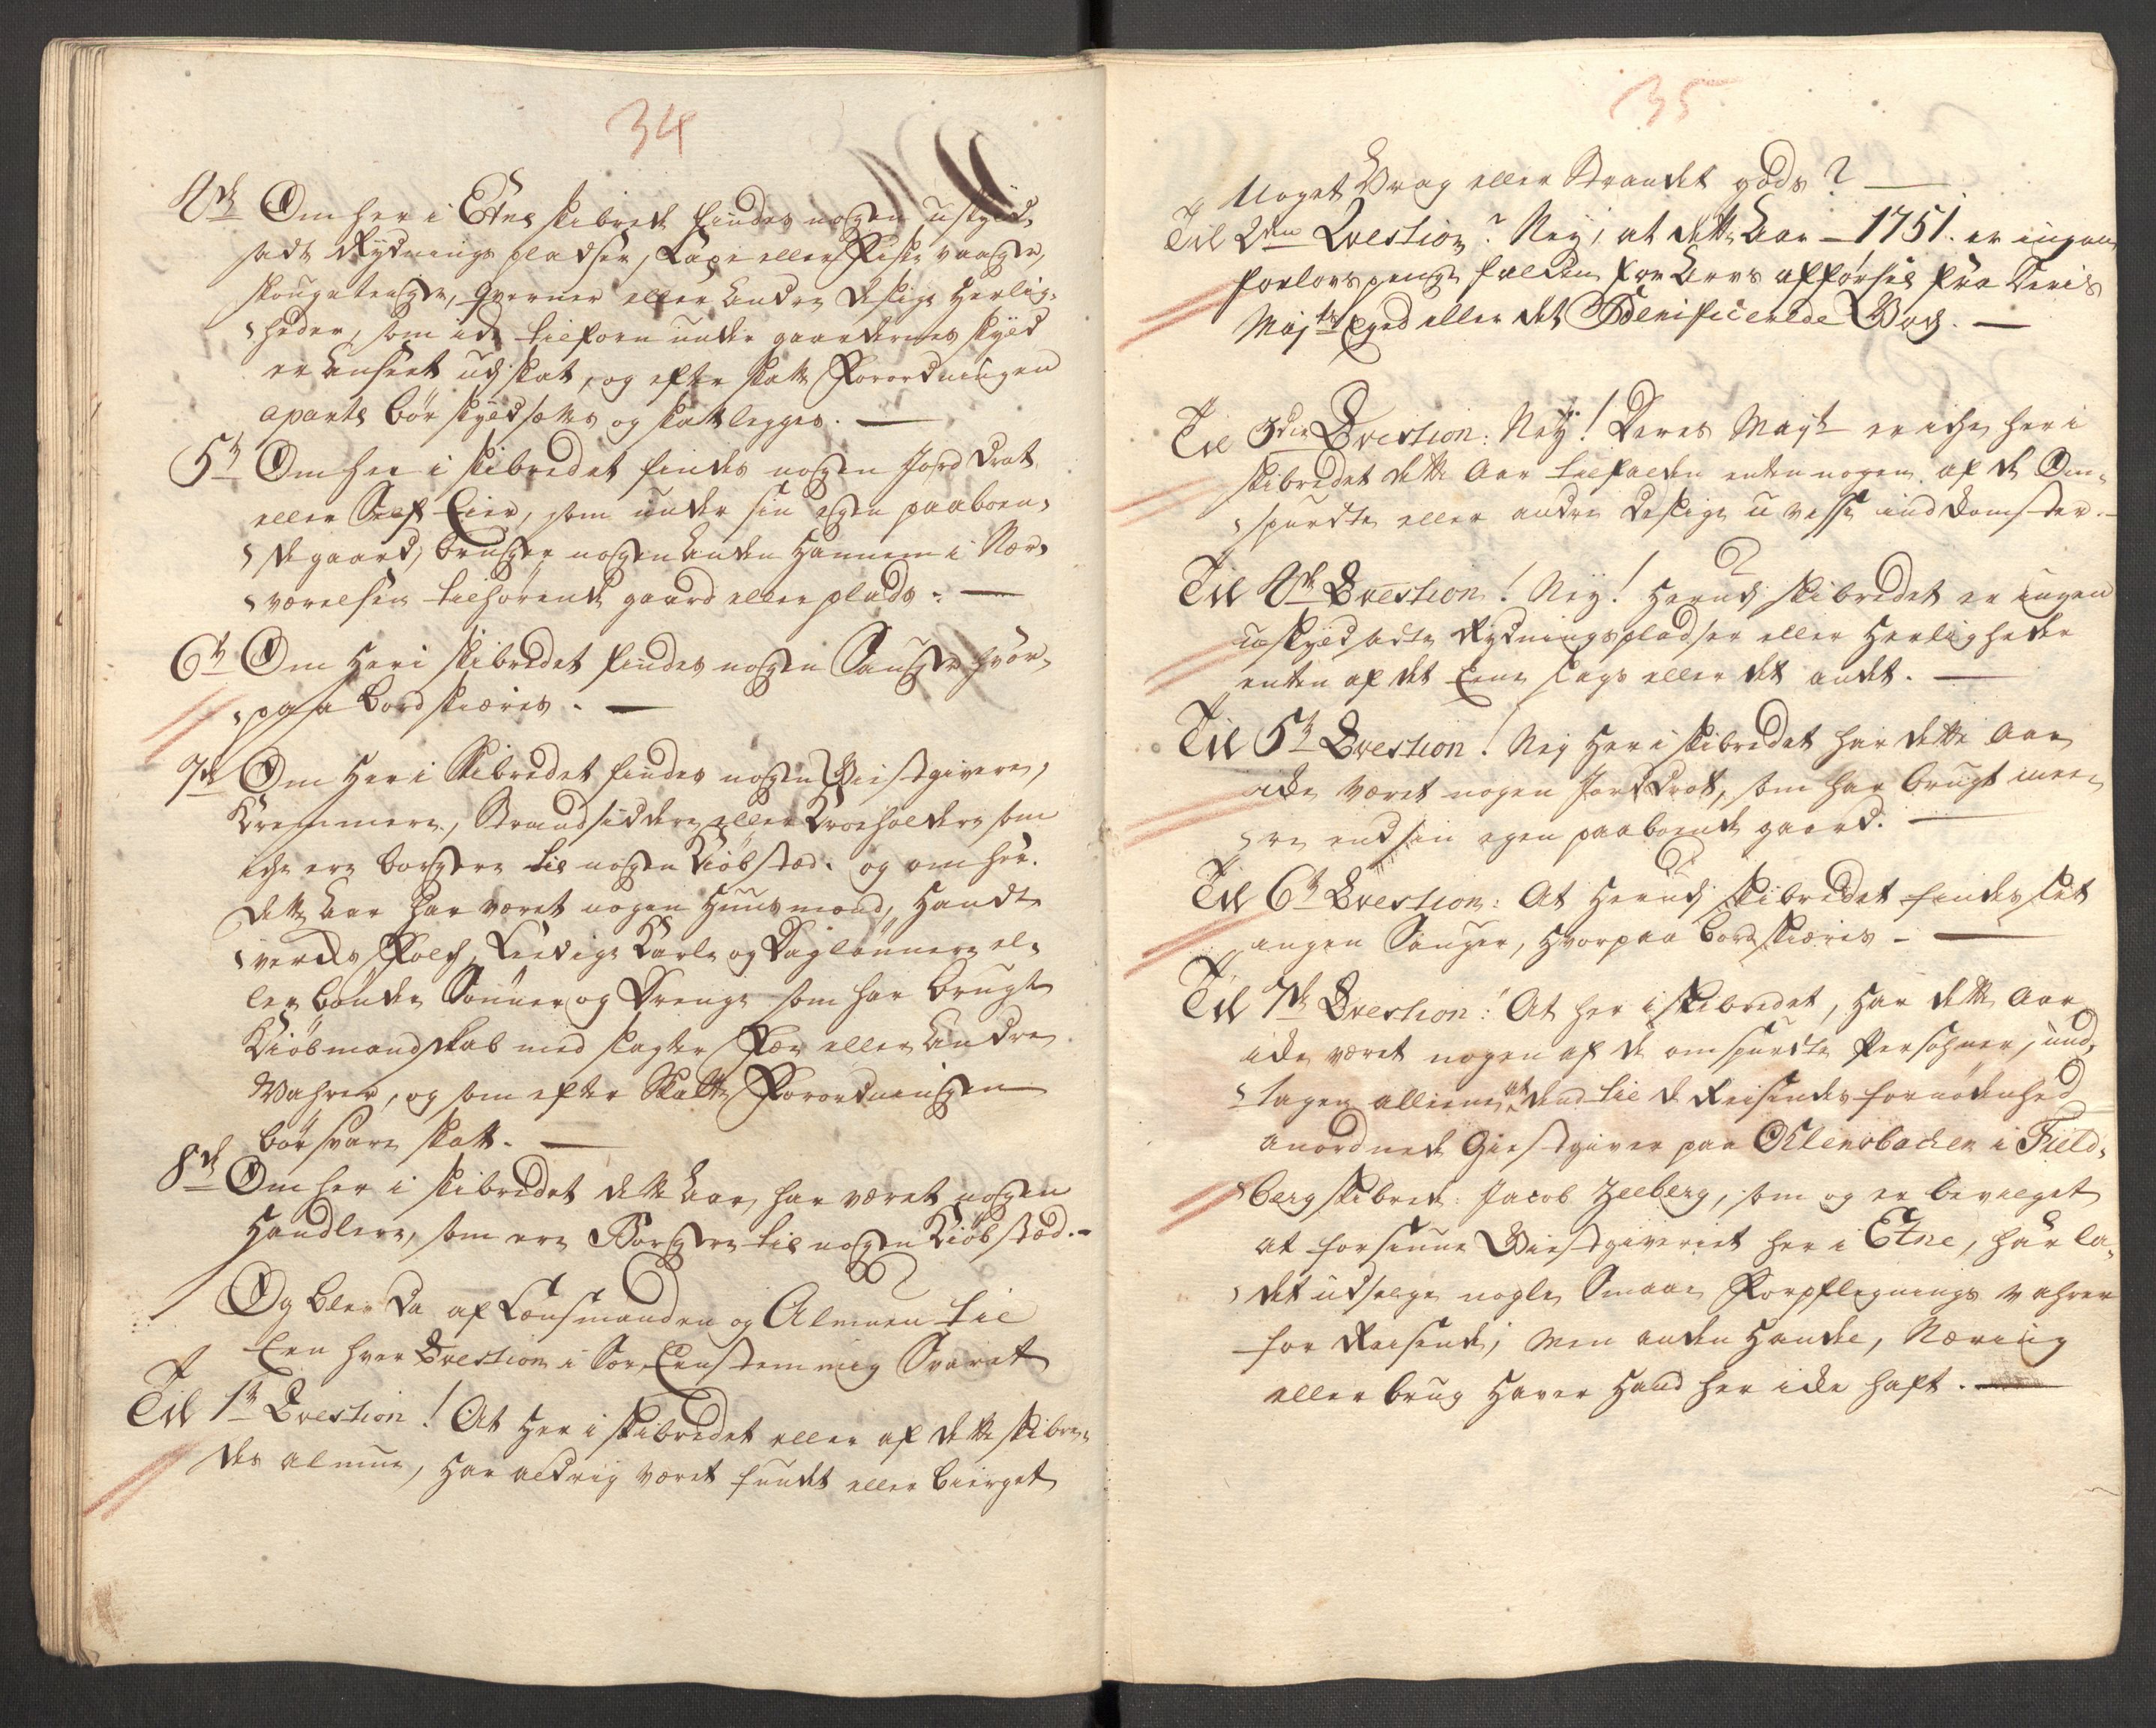 34
4de Om her i Etne skibrede findes nogen uskyld-
satte Rydnings pladser, Laxe eller Fiske vaager,
skougateiger, qverner eller andre deslige Herlig-
heder, som icke tilforn under gaardernes skyld
er anseet udj skat, og efter skatte Forordningen
aparte bør skyldsættes og skatlegges. —
5te Om her i skibredet findes nogen Jord Drot
eller Self Eier, som under sin egen paaboen-
de gaard, bruger nogen anden Hannem i Nær-
værelsen tilhørende gaard eller plads. —
6te Om her i skibredet findes nogen Sauger hvor-
paa bord skiæris. —
7de Om her i Skibredet findes nogen Giestgivere,
Kremmere, Strandsiddere eller Kroeholdere som
iche ere borgere til nogen Kiøbstæd. og om her
dette Aar har været nogen Huusmænd, Handt-
verks Folch, Leedige Karle og Daglønnere el-
ler bønder Sønner og Drenge som har brugt
Kiøbmandskab med slagter Fæe eller Andre
Wahrer, og som efter Skatte Forordningen
bør svare skatt. —
8de Om her i skibredet dette Aar, har været nogen
Handlere, som ere Borgere til nogen Kiøbstæd. -
Og blev da af Lensmanden og Almuen til
Een hver Qvestion i sær, Eenstemmig Svaret
Til 1te Qvestion! At her i skibredet eller af dette skibre-
des almue, har aldrig været fundet eller bierget
35
Noget Vrag eller Strandet gods? —
Til 2den Qvestion? Ney, at dette Aar - 1751. er ingen
forlovs penge falden for Arvs afførsel fra Deris
Mayts Eyed eller det Benificerede Gods. —
Til 3die Qvestion: Ney! Deres Mayt er iche her i
skibredet dette Aar tilfalden enten nogen af de Om-
spurdte eller andre deslige uvisse indkomster. —
Til 4de Qvestion! Ney! Herudj skibredet er ingen
uskyldsatte Rydningspladser eller Herligheder
enten af det Eene slags eller det andet. —
Til 5te Qvestion! Ney her i skibredet har dette Aar
icke været nogen Jord Drot, som har brugt mee-
re end sin egen paaboende gaard. —
Til 6te Qvestion: At Herudj skibredet findes slet
ingen Sauger, hvorpaa bord skiæris - —
Til 7de Qvestion: At her i skibredet, har dette Aar
icke været nogen af de omspurdte Persohner, und-
tagen alleene at dend til de Reisendes fornødenhed
anordnede Giestgiver paa Ølensbachen i Field-
berg skibrede: Jacob Zeeberg, som og er bevilget
at forsiune Giestgiveriet her i Etne, har la-
det udselge nogle Smaae Forpflegnings wahrer
for Reisende, men anden Handel, Næring
eller brug haver hand her icke haft. —